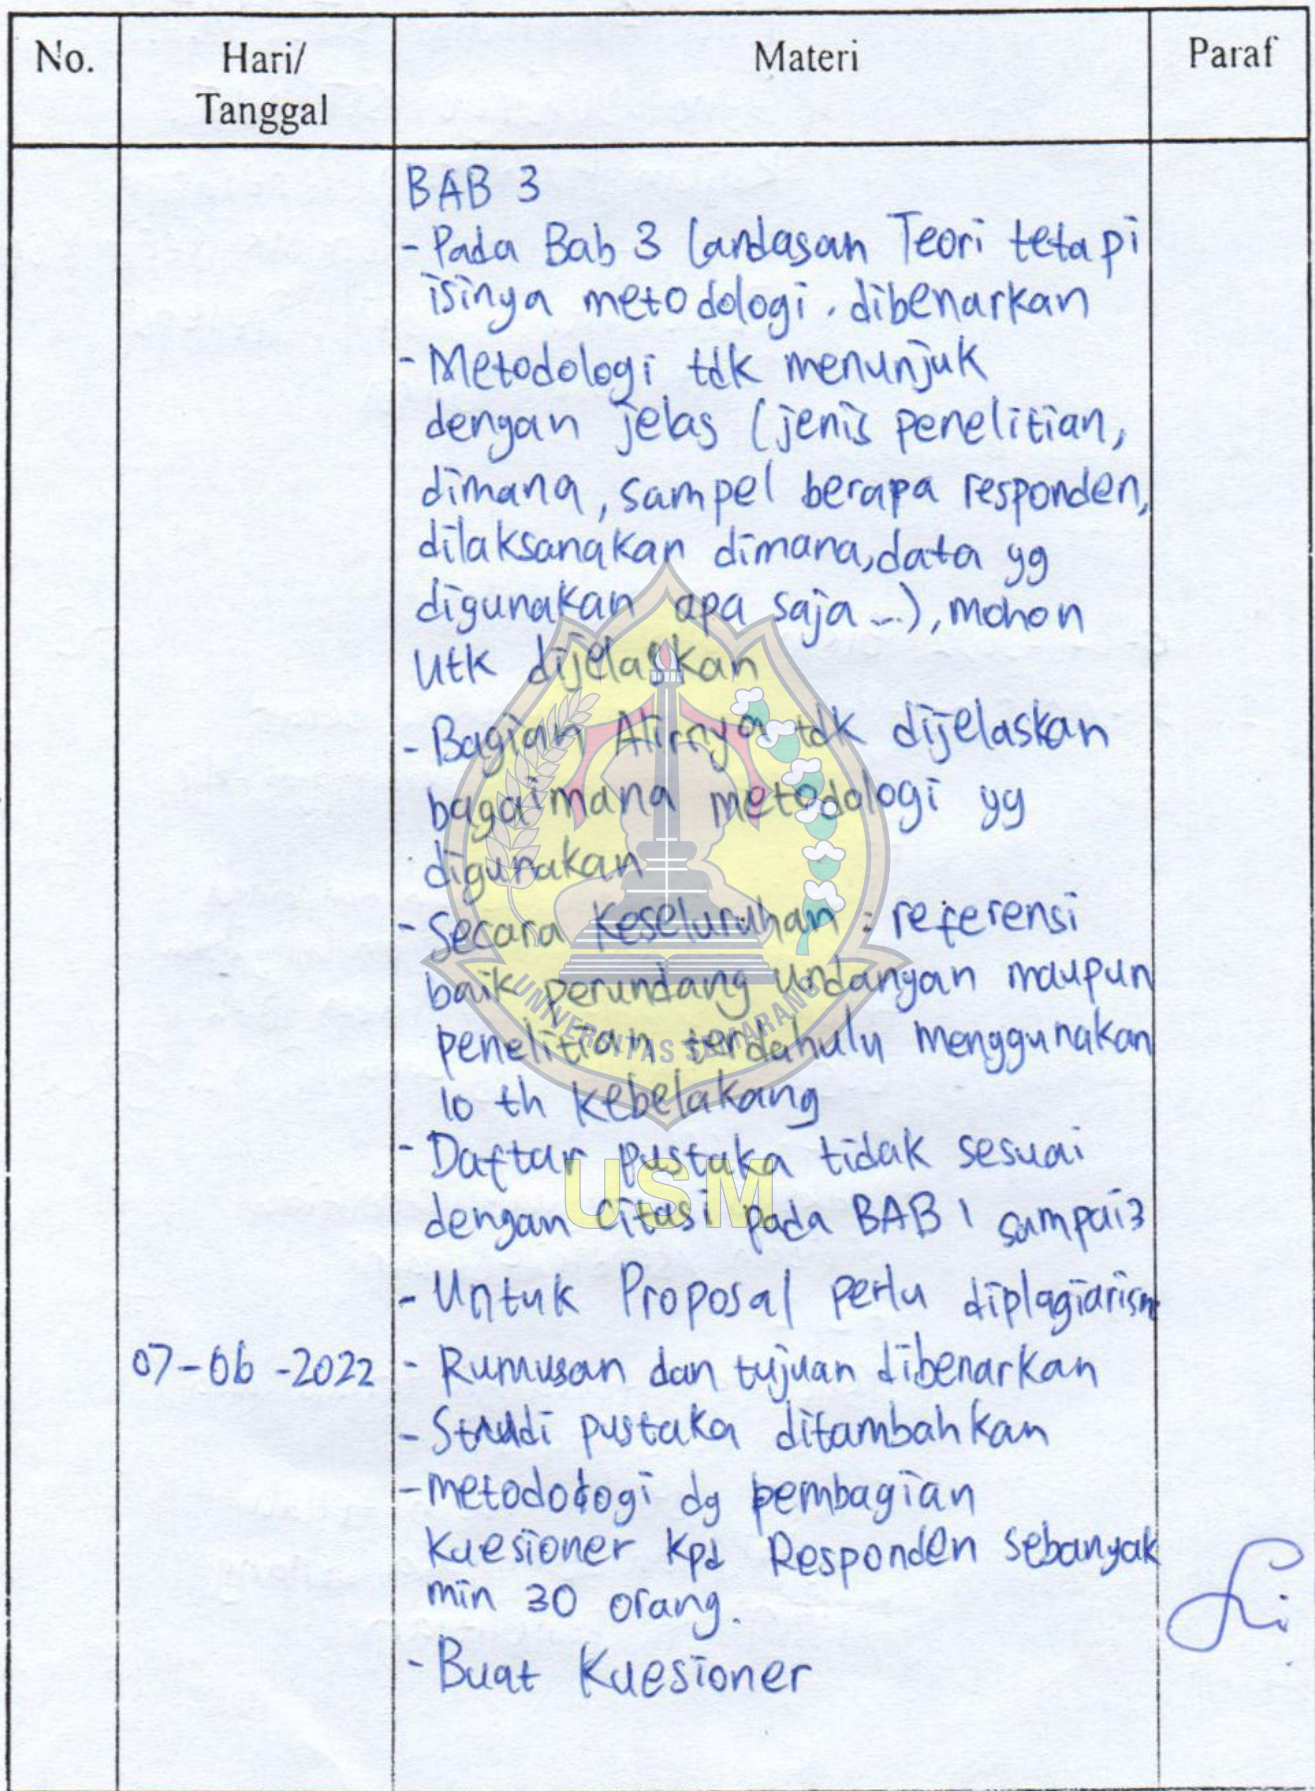 No.
Hari/
Tanggal
Materi
Paraf
BAB 3
- Pada Bab 3 Landasan Teori tetapi
isinya metodologi. dibenarkan
- Metodologi tdk menunjuk
dengan jelas (jenis penelitian,
dimana, sampel berapa responden,
dilaksanakan dimana, data yg
digunakan apa saja ...), mohon
utk dijelaskan
- Bagian Alirnya tdk dijelaskan
bagaimana metodologi yg
digunakan
- Secara Keseluruhan : referensi
baik perundang undangan maupun
penelitian terdahulu menggunakan
10 th kebelakang
- Daftar pustaka tidak sesuai
dengan Citasi pada BAB 1 sampai 3
- Untuk Proposal perlu diplagiarism
07-06-2022 - Rumusan dan tujuan dibenarkan
- Studi pustaka ditambahkan
- metodologi dg pembagian
Kuesioner kpd Responden sebanyak
min 30 orang.
- Buat Kuesioner
UNIVERSITAS SEMARANG
USM